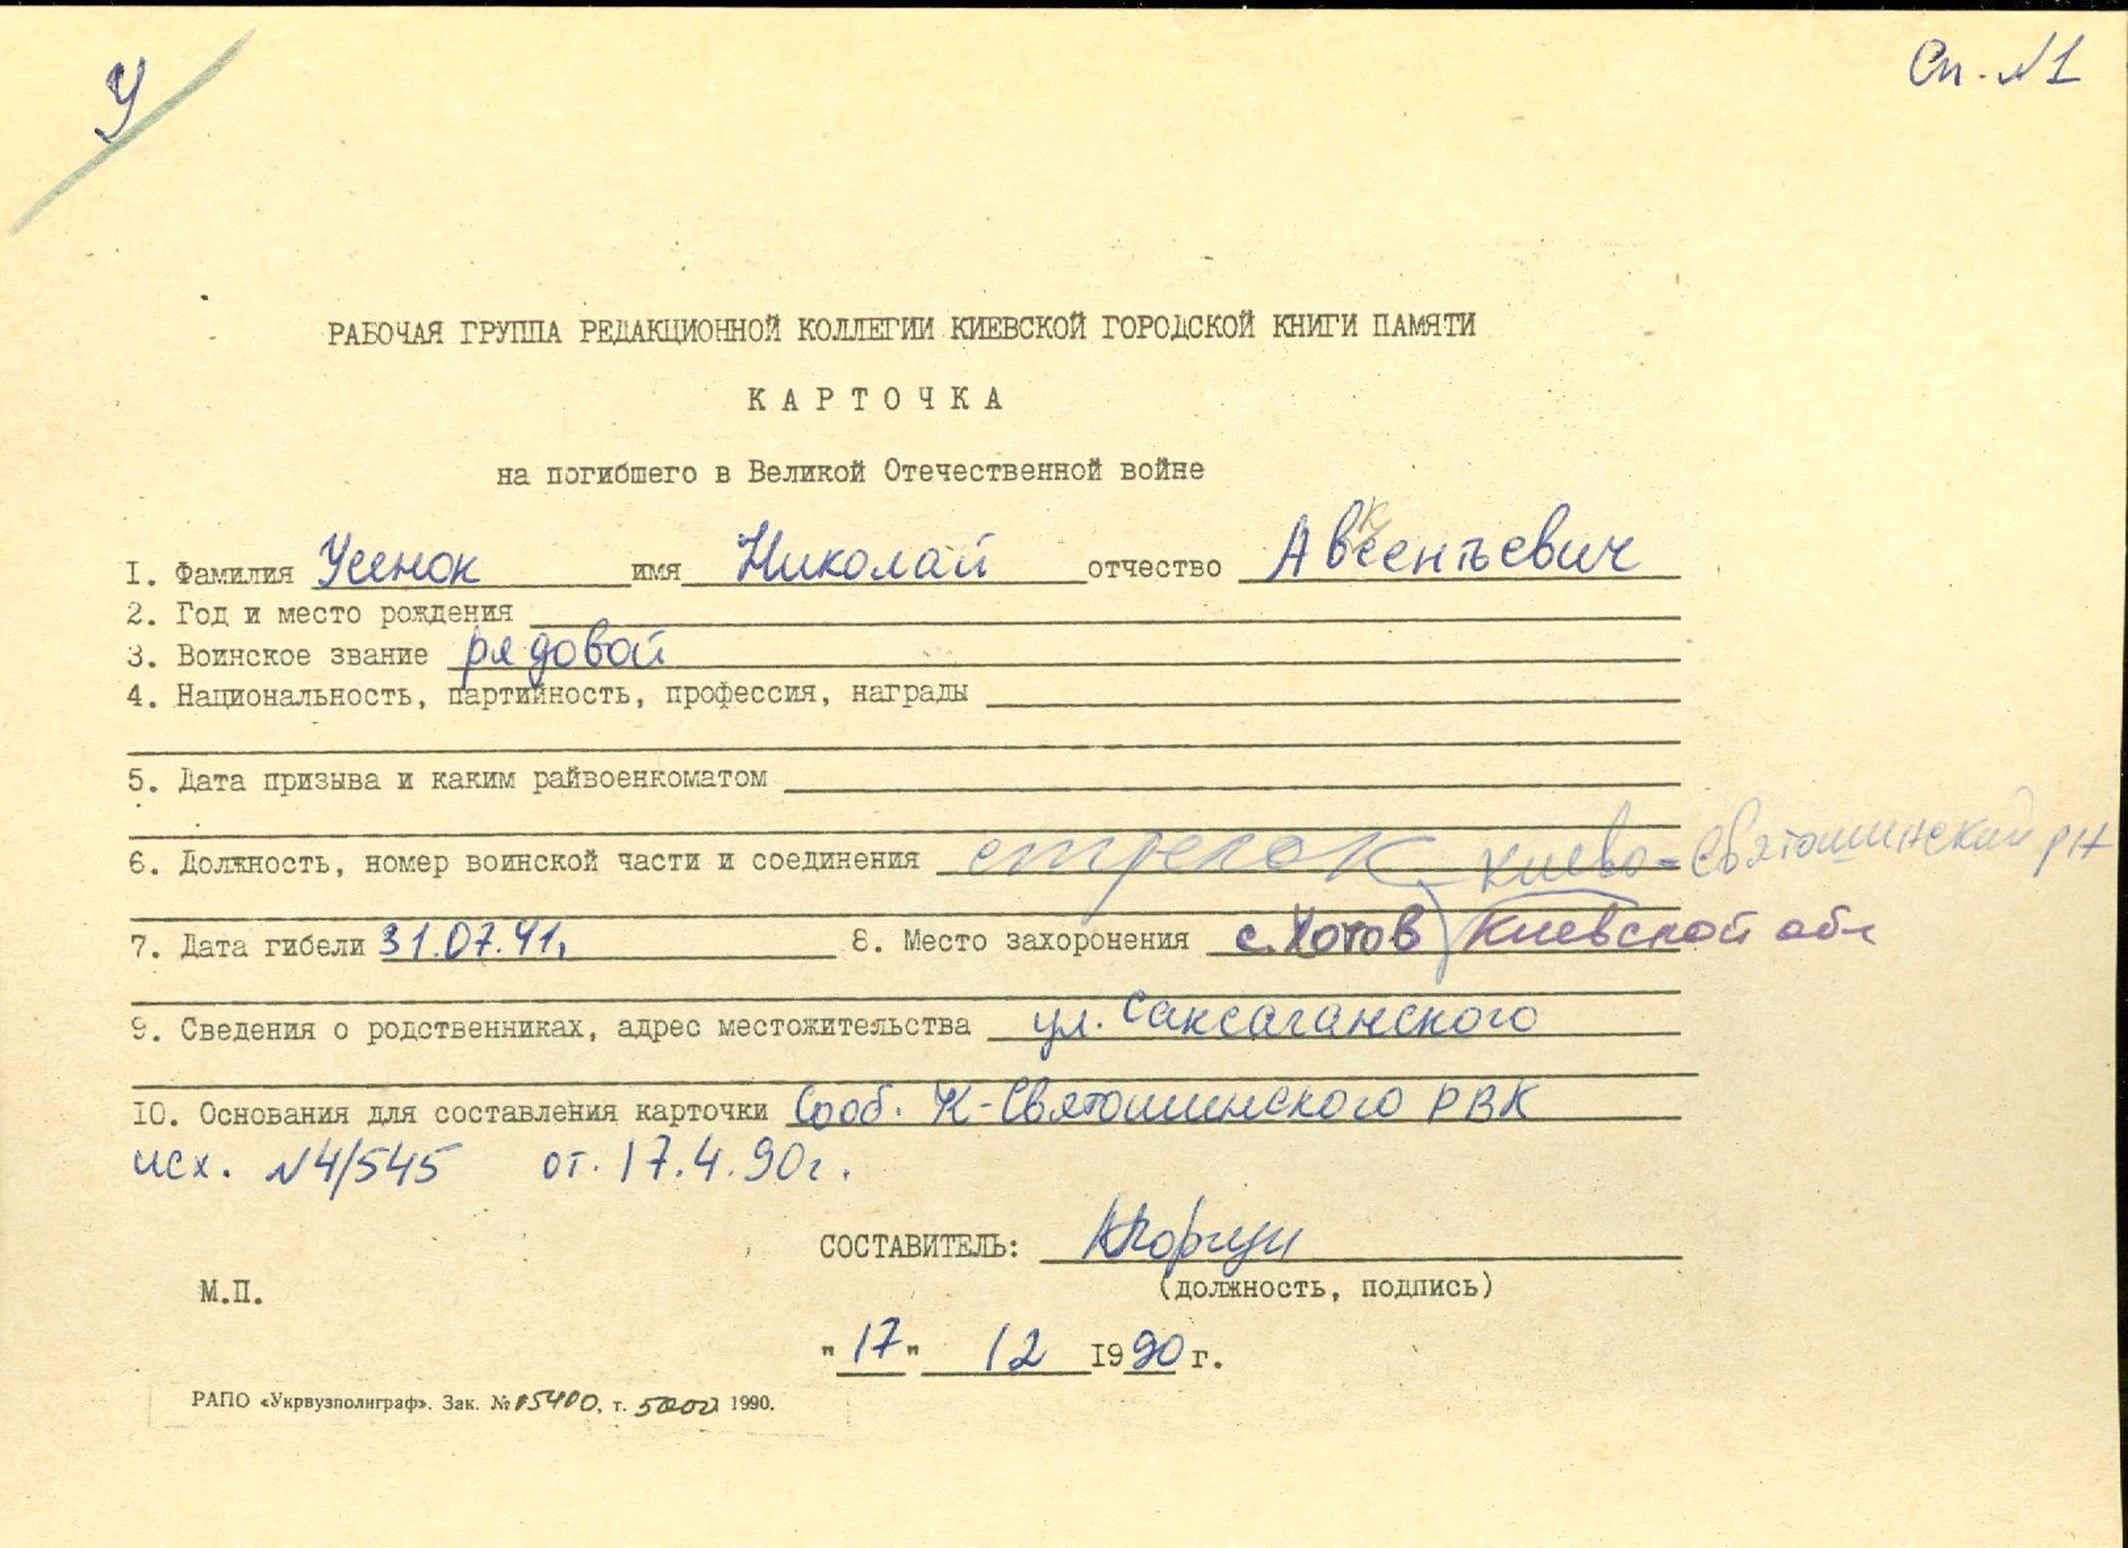 У
Сп. №1
РАБОЧАЯ ГРУППА РЕДАКЦИОННОЙ КОЛЛЕГИИ КИЕВСКОЙ ГОРОДСКОЙ КНИГИ ПАМЯТИ
КАРТОЧКА
на погибшего в Великой Отечественной войне
I. Фамилия Усенок имя Николай отчество Авксентьевич
2. Год и место рождения
3. Воинское звание рядовой
4. Национальность, партийность, профессия, награды
5. Дата призыва и каким райвоенкоматом
6. Должность, номер воинской части и соединения стрелок Киево-Святошинский р-н
7. Дата гибели 31.07.41, 8. Место захоронения с. Хотов Киевской обл
9. Сведения о родственниках, адрес местожительства ул. Саксаганского
IO. Основания для составления карточки Сооб. К-Святошинского РВК
исх. №4/545 от. 17.4.90г.
СОСТАВИТЕЛЬ:
М.П. (должность, подпись)
"17" 12 1990 г.
РАПО «Укрвузполиграф». Зак. № 05400, т. 5000 1990.